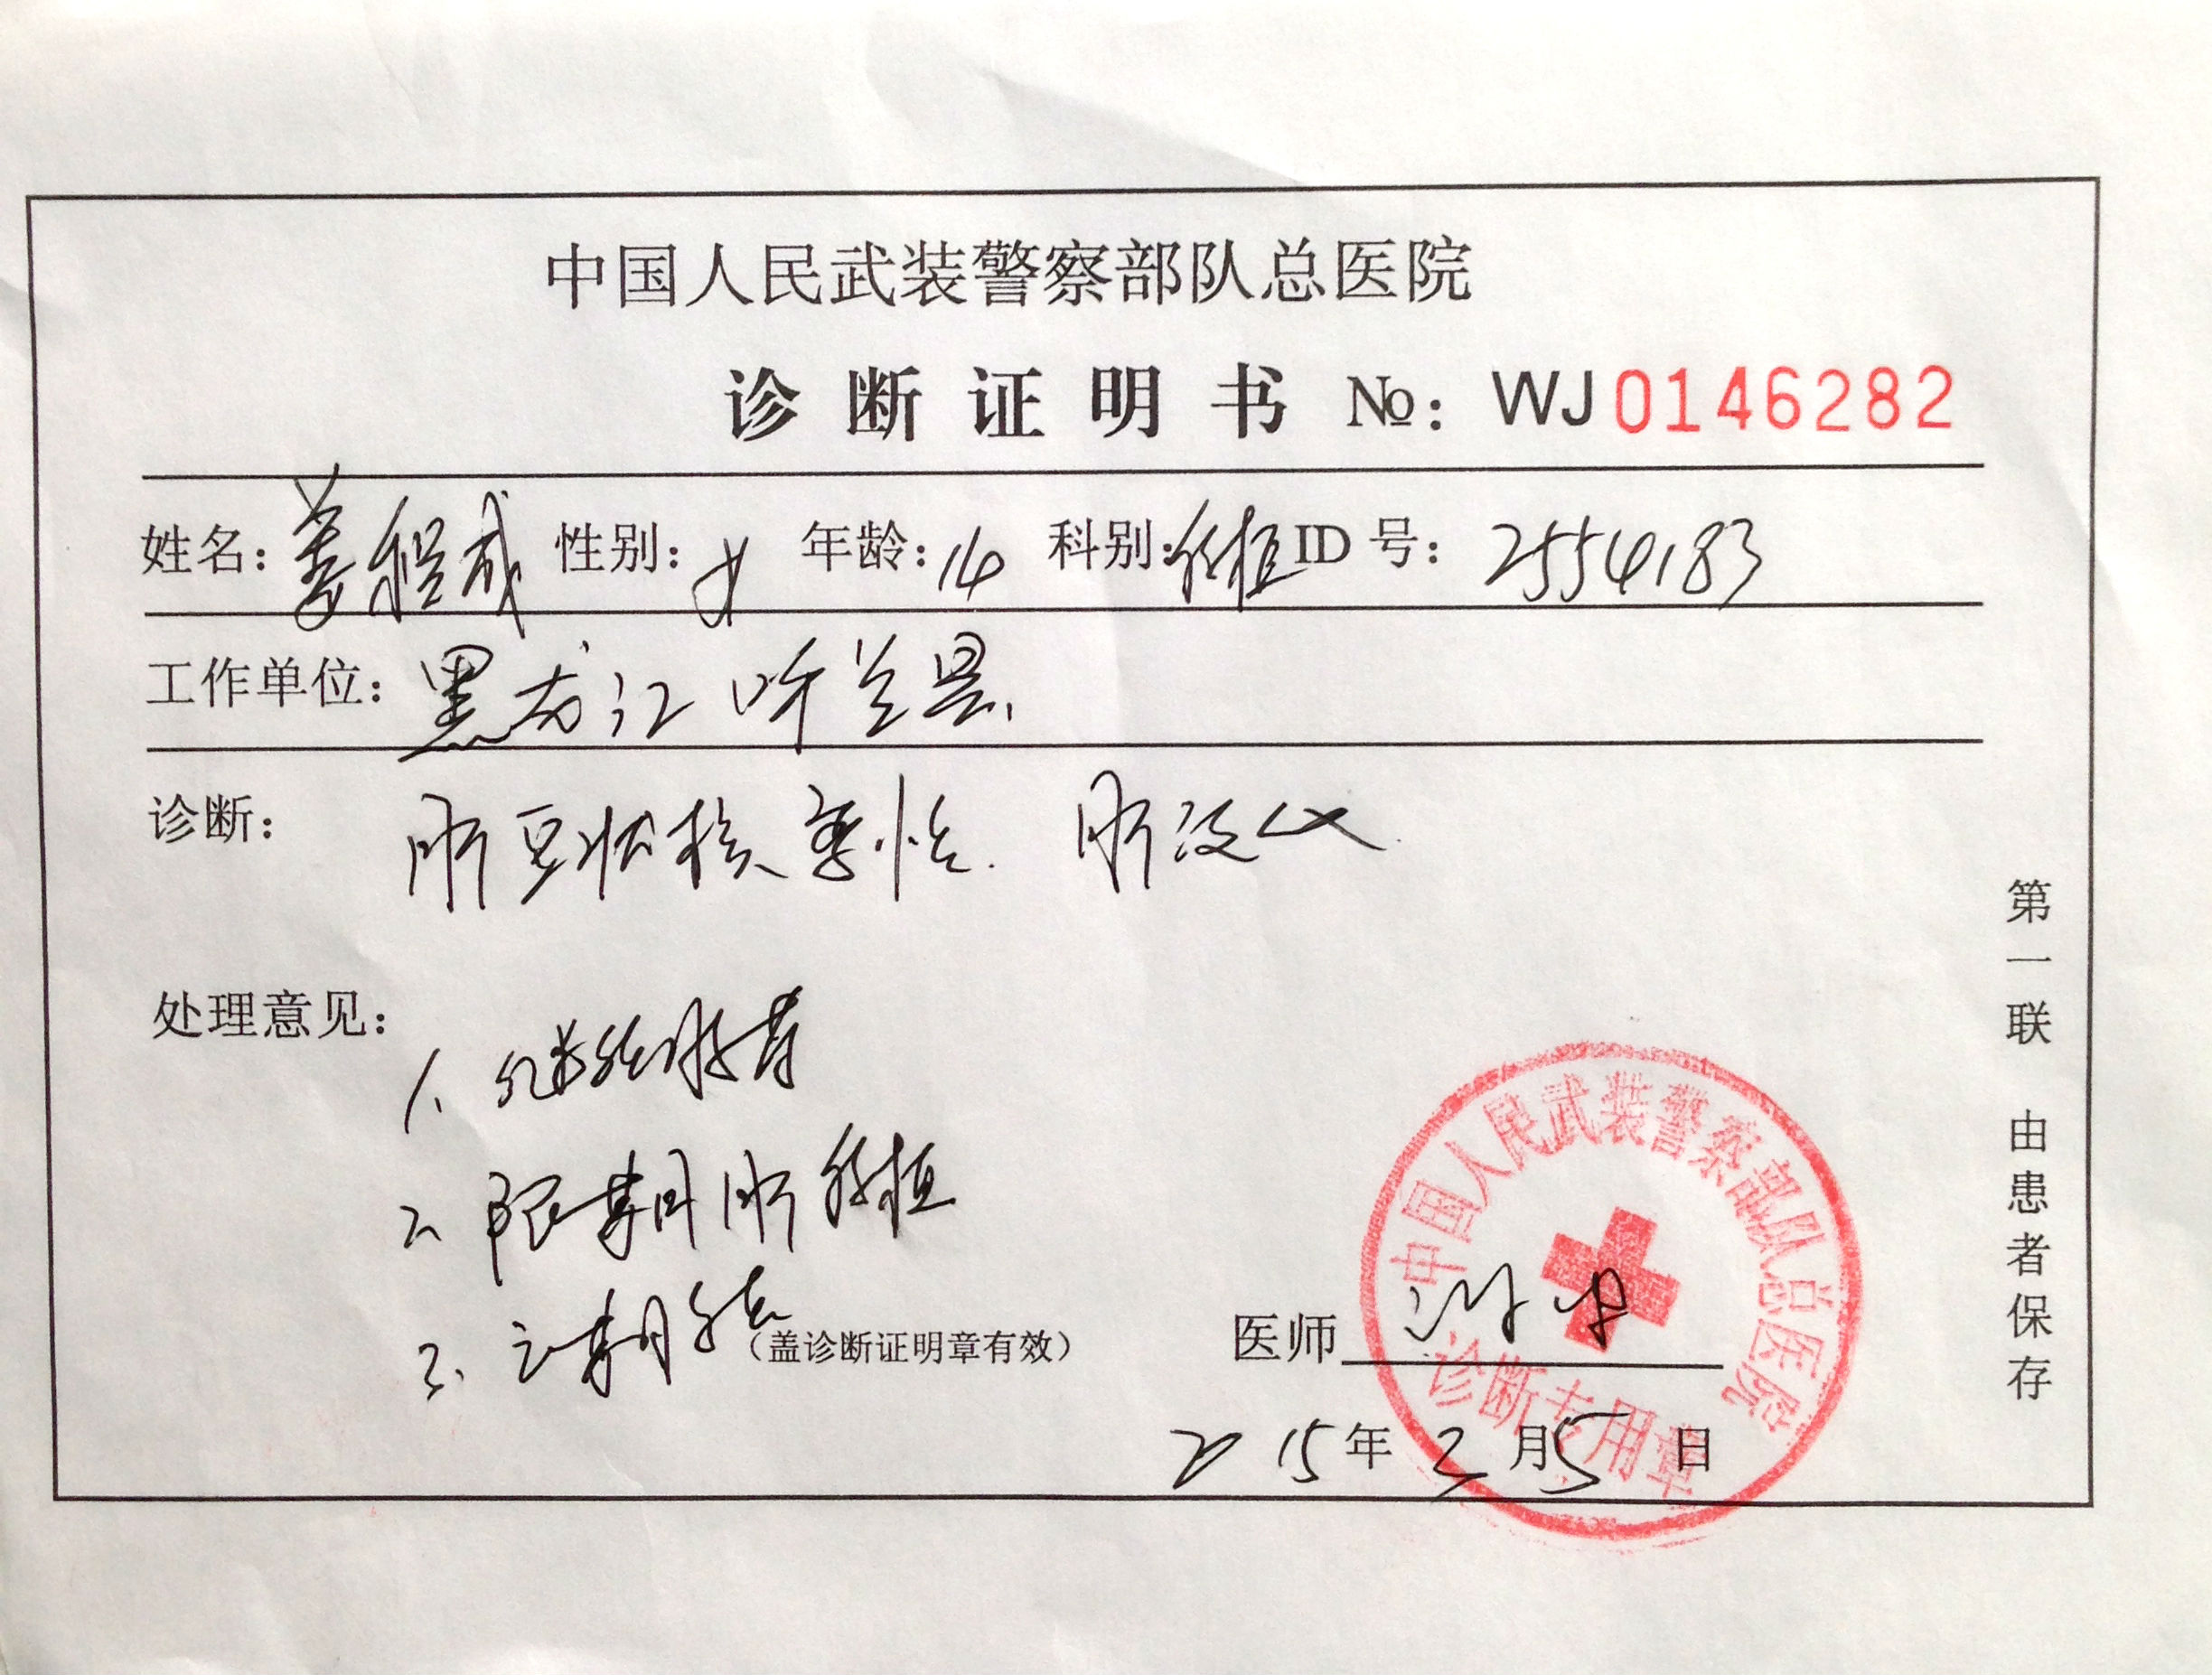 中国人民武装警察部队总医院
诊断证明书 №：WJ0146282
姓名：姜程成 性别：女 年龄：14 科别：移植 ID号：2554183
工作单位：黑龙江 县
诊断：肝豆状核变性. 肝硬化.
处理意见：
1. 继续服药
2. 限期肝移植
3. 定期
（盖诊断证明章有效） 医师
2015年3月5日
第一联 由患者保存
中国人民武装警察部队总医院
诊断专用章